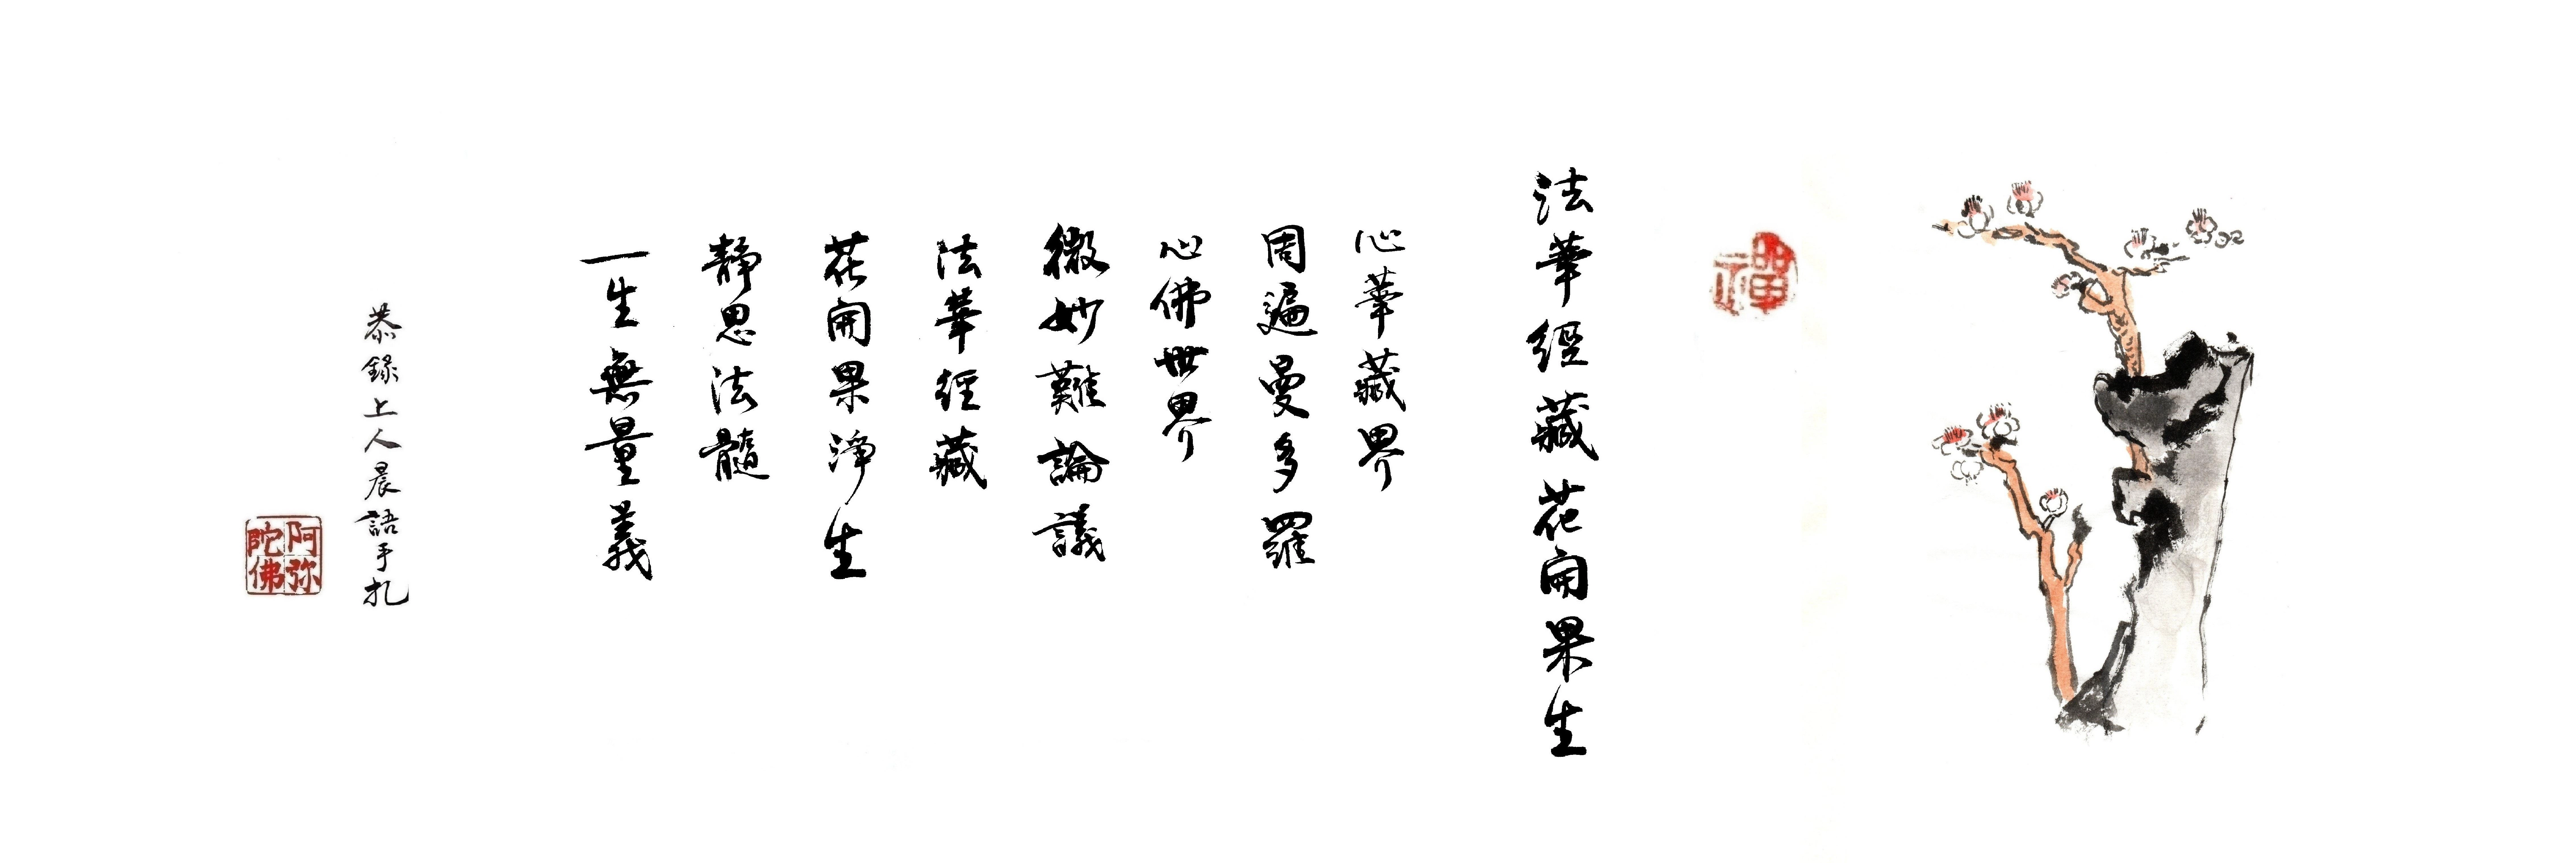 禪
法華經藏花開果生
心華藏界
周遍曼多羅
心佛世界
微妙難論議
法華經藏
花開果淨生
靜思法髓
一生無量義
恭錄上人晨語手札
阿弥
陀佛